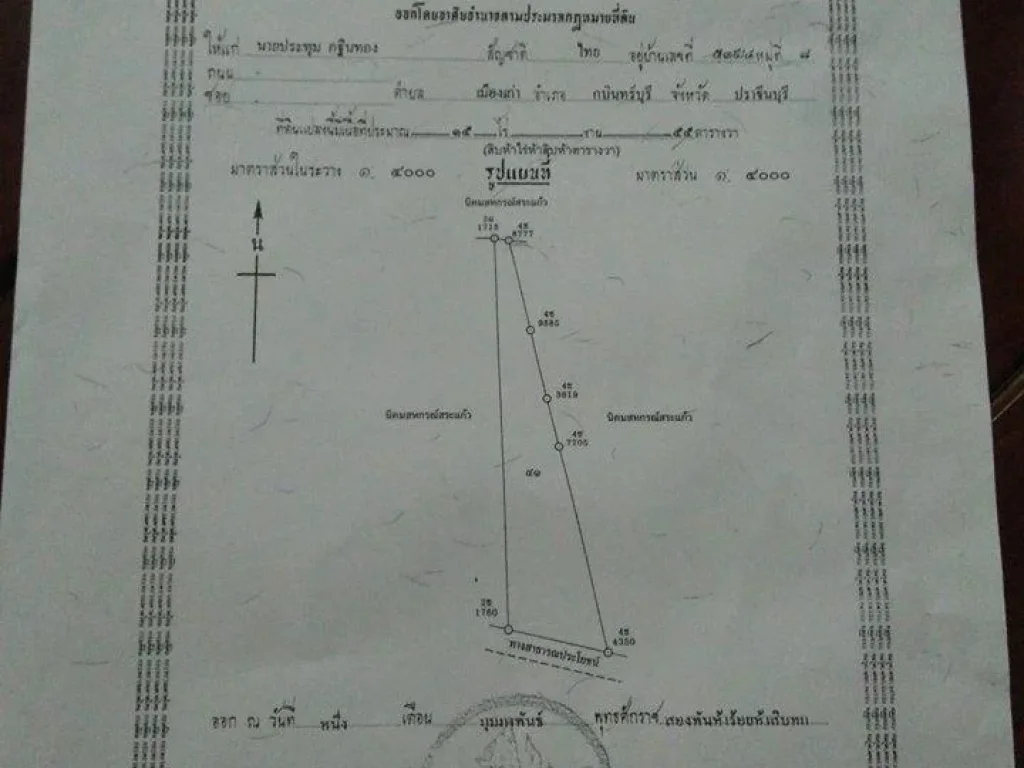 ออกโดยอาศัยอำนาจตามประมวลกฎหมายที่ดิน
ให้แก่ นายประทุม กฐินทอง สัญชาติ ไทย อยู่บ้านเลขที่ หมู่ที่ ๘
ถนน
ซอย ตำบล เมืองเก่า อำเภอ กบินทร์บุรี จังหวัด ปราจีนบุรี
ที่ดินแปลงนี้มีเนื้อที่ประมาณ ๑๕ ไร่ งาน ๕๕ ตารางวา
(สิบห้าไร่ห้าสิบห้าตารางวา)
มาตราส่วนในระวาง ๑: ๔๐๐๐ รูปแผนที่ มาตราส่วน ๑: ๔๐๐๐
นิคมสหกรณ์สระแก้ว
น
4ช
8777
4ช
4ช
3619
4ช
7705
นิคมสหกรณ์สระแก้ว นิคมสหกรณ์สระแก้ว
๔๑
1760
4ช
4350
ทางสาธารณประโยชน์
ออก ณ วันที่ หนึ่ง เดือน กุมภาพันธ์ พุทธศักราช สองพันห้าร้อยห้าสิบหก